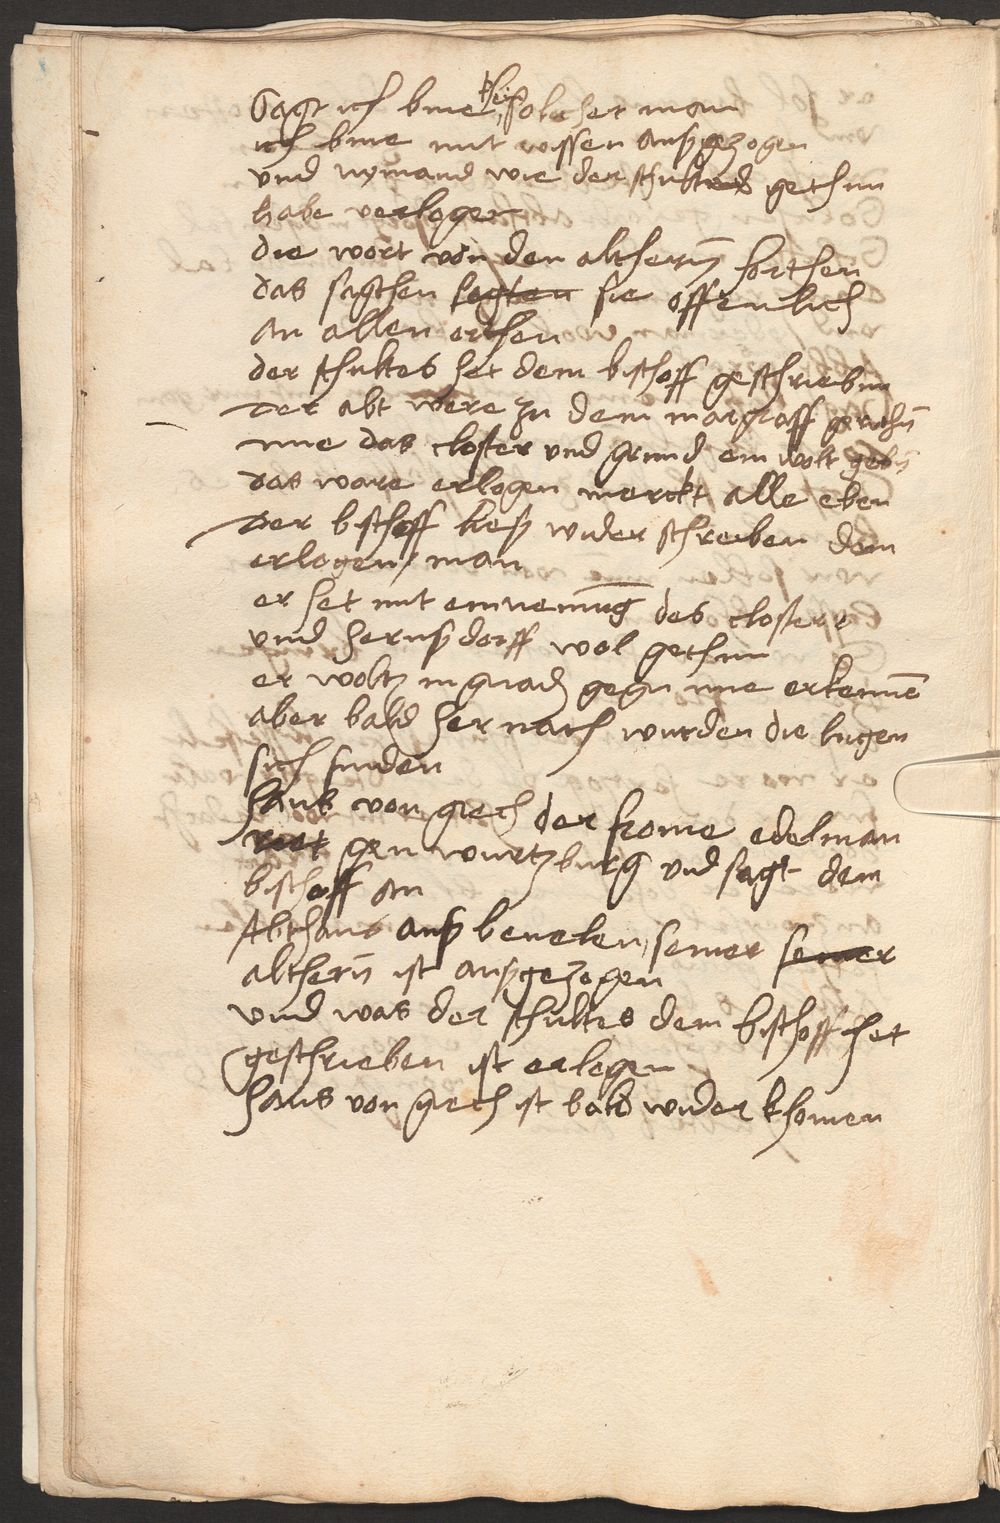 Sagt ich bine khein solicher man
ich bine mit wissen ausgezogen
und nymand wie der schultes gethun
habe verlogen
die wort von den altherrn horthen
das sagthen sagten sie offenlich
an allen orthen
der schultes het dem bischoff geschriebnn
Der abt were zu dem margraff gerithn
nue das closter und grund ein wolt gebn
das ware erlogen merckt alle eben
Der bischoff lies wider schreiben dem
erlogen man
er het mit einnemung des closters
und hernsdorff wol gethun
er woltz in gnad gegn ime erkennen
aber bald her nach wurden die lugen
sich finden
Hans von giech der frome edelman
riet gen wurtzburg und sagt dem
bischoff an
Abt hans aus bevelen seiner seiner
altherrn ist ausgezogen
und was der schultes dem bischoff het
geschrieben ist erlogen
Hans von giech ist bald wider khomen